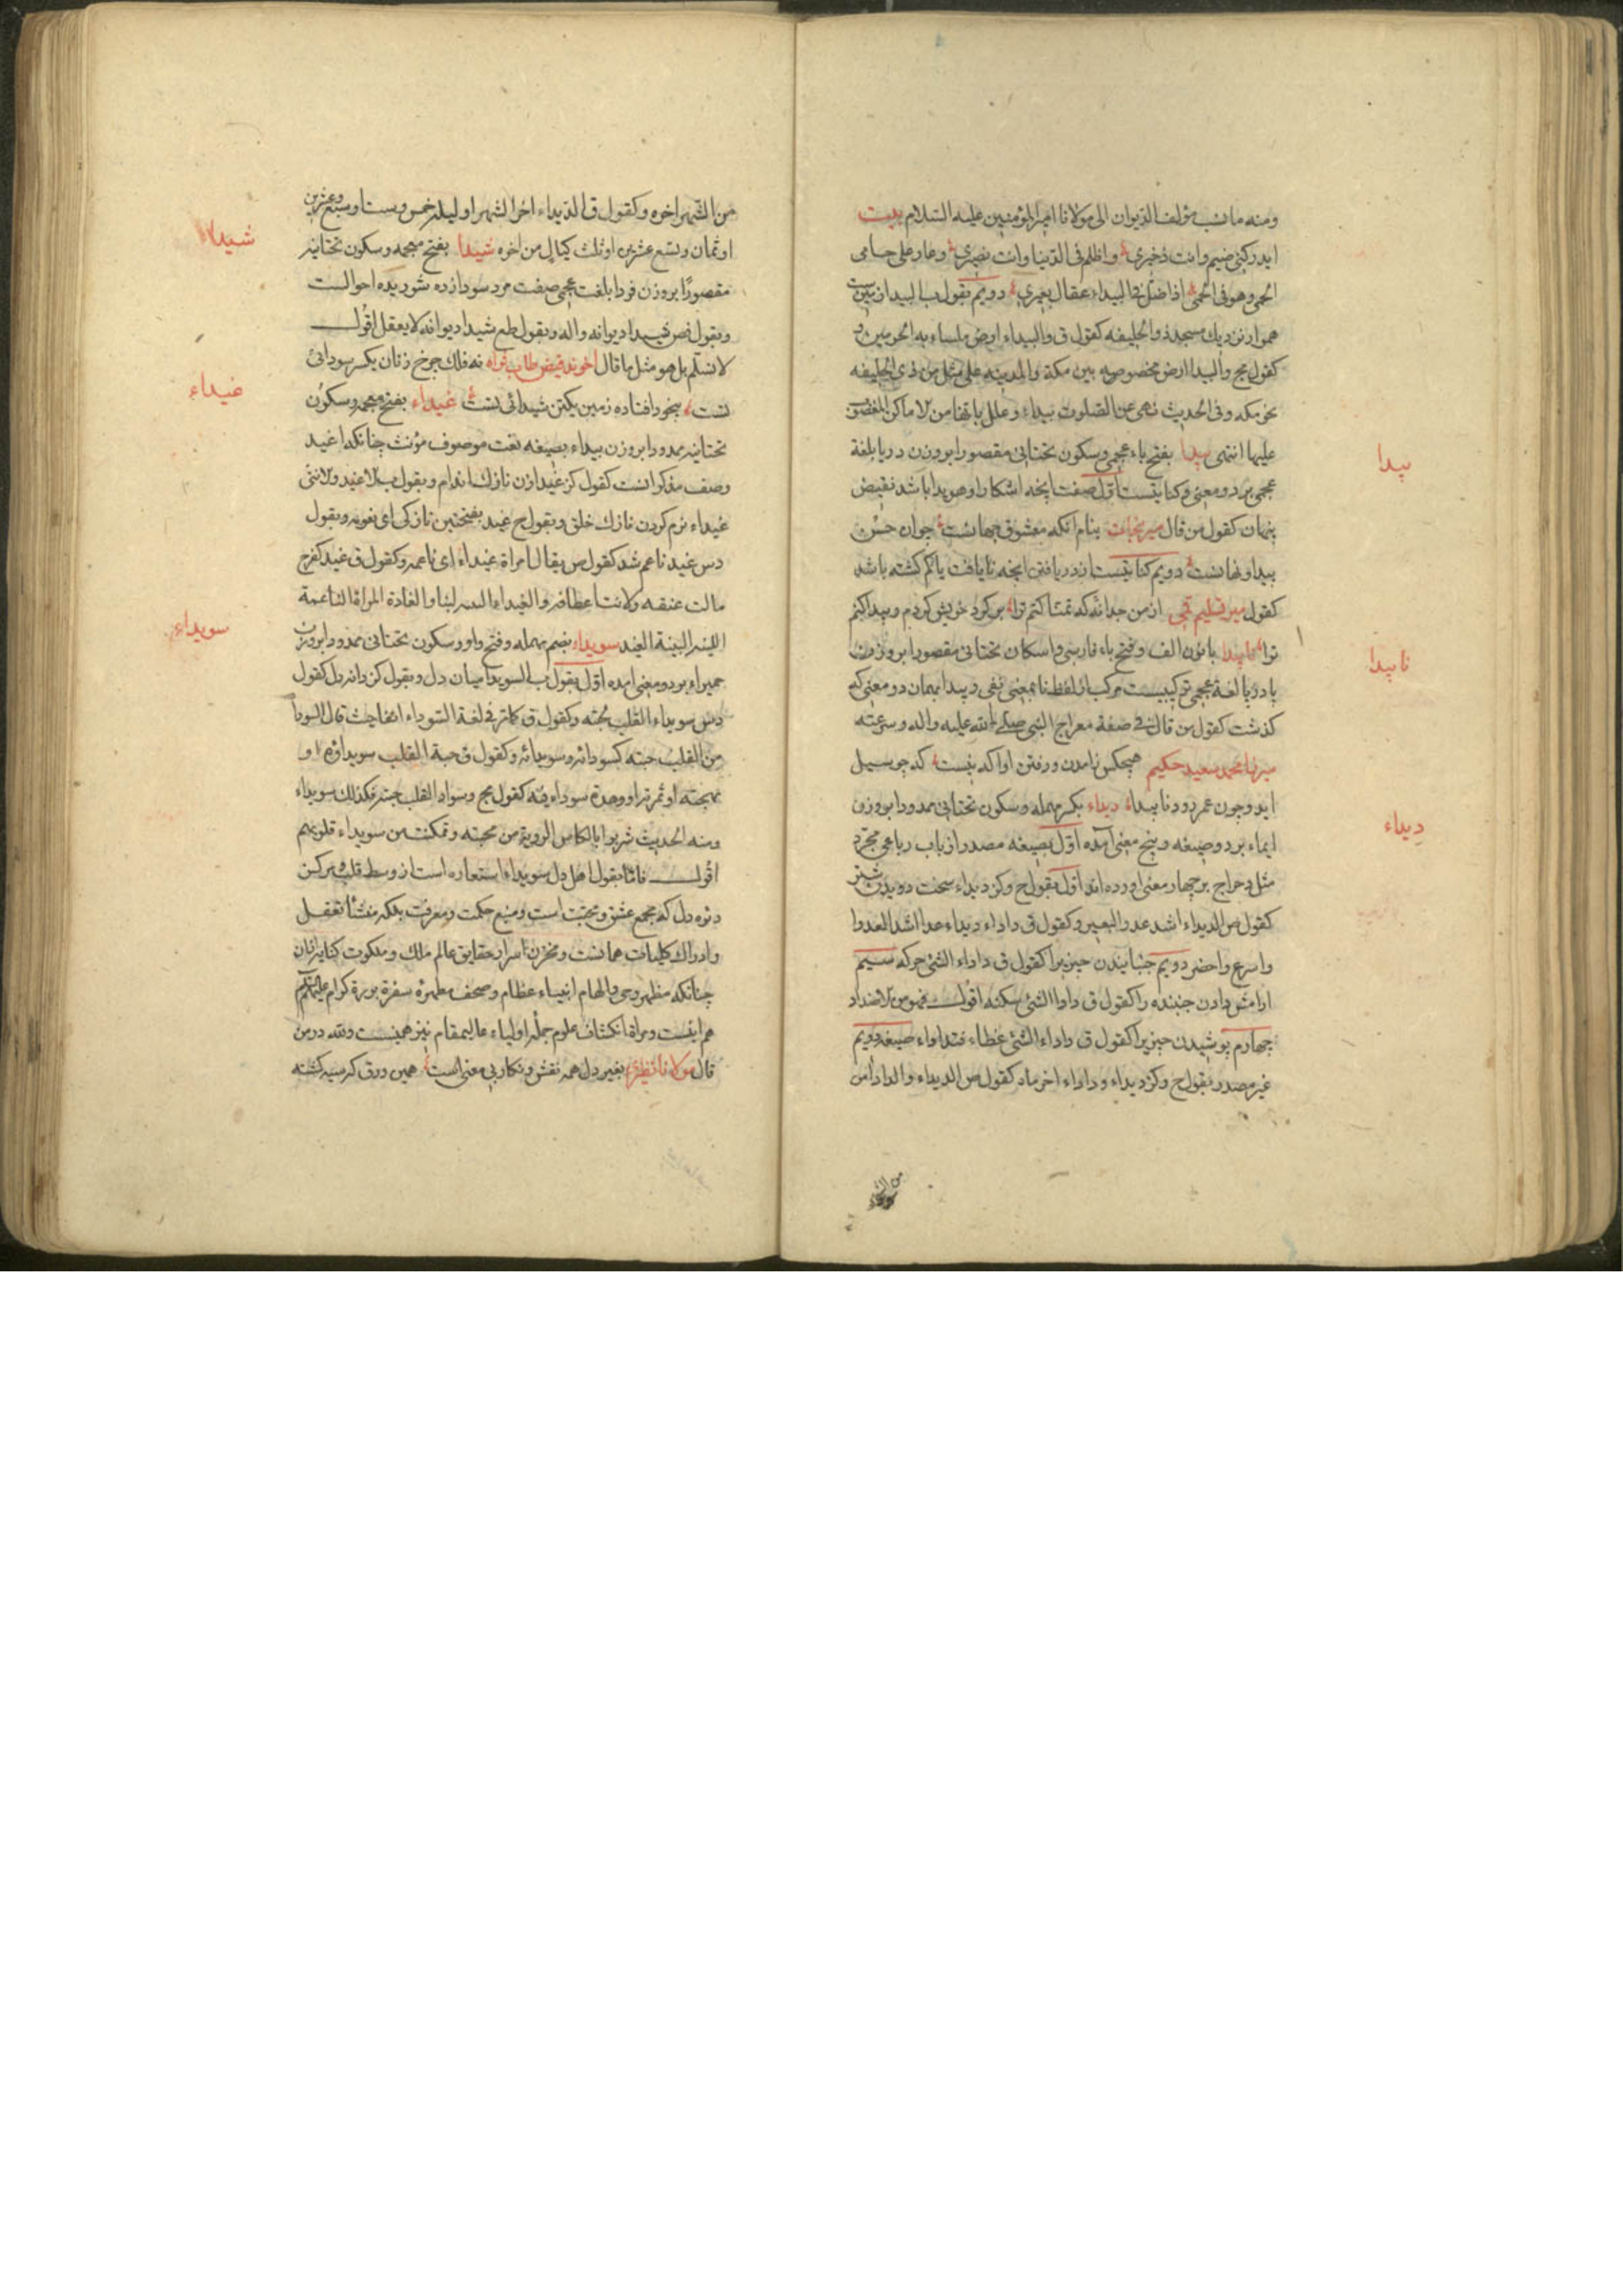 ومنه ما نسب مؤلف الديوان الى مولانا امير المؤمنين عليه السلام بيت
ايدركني ضيم وانت ذخيرتي واظلم في الدنيا وانت نصيري وعار على حامى
الحمى وهو في الحمى اذا ضل في البيداء عقال بعيري دويم بقول ب البيدا زمين
هموار نزديك مسجد ذو الحليفه كقول ق والبيداء ارض ملساء بين الحرمين و
كقول مج والبيدا ارض مخصوصه بين مكة والمدينه على ميل من ذي الحليفه
نحو مكه وفى الحديث نهى عن الصلوة بيداء وعلل بانها من الاماكن المغضوب
عليها انتهى پيدا بفتح باء عجمى وسكون تحتانى مقصورا بروزن دريا بلغة
عجمى بر دو معنى كنايتست اول صفت انچه اشكارا وهويدا باشد نقيض
پنهان كقول من قال مير نجات بنام انكه معشوق جهانست جوان حسن
پيدا ونهانست دويم كنايتست از دريافتن انچه نايافت يا كم كشته باشد
كقول مير تسليم قمى از من جدا نه كه تمنا كنم ترا بر كرد خويش كردم وپيدا كنم
ترا ناپيدا با نون الف وفتح باء فارسى واسكان تحتانى مقصورا بروزن
با دريا لغة عجمى تركيبيست مركب از لفظ نا بمعنى نفى وپيدا بهمان دو معنى كه
كذشت كقول من قال فى صفة معراج النبى صلى الله عليه واله وسرعته
ميرزا محمد سعيد حكيم هيچكس ز امدن ورفتن او اكه نيست كه چو سيل
ايد وچون عمر رود ناپيدا ديداء بكسر مهمله وسكون تحتانى ممدودا بروزن
ايماء بر دو صيغه وپنج معنى آمده اول بصيغه مصدر از باب رباعى مجرد
مثل دحراج بر چهار معنى اورده اند اول بقول ح وكز ديداء سخت دويدن شتر
كقول ص الديداء اشد عدو البعير وكقول ق داداء ديداء عدا اشد العدو
واسرع واحضر دويم جنبانيدن چيزيرا كقول ق داداء الشئ حركه سيم
ارامش دادن جنبنده را كقول ق داداء الشئ سكنه اقول فهو من الاضداد
چهارم پوشيدن چيزيرا كقول ق داداء الشئ غطاء فتداداء صيغه دويم
غير مصدر بقول ح وكز ديداء وداداء اخر ماه كقول ص الديداء والداداء من
پيدا
ناپيدا
ديداء
من الشهر اخره وكقول ق الديداء اخر الشهر او ليلة خمس وست وسبع وعشرين
او ثمان وتسع عشرين او ثلث ليال من اخره شيدا بفتح معجمه وسكون تحتانيه
مقصورا بروزن فردا بلغت عجمى صفت مرد سودازده شوريده احوالست
وبقول فص شيدا ديوانه واله وبقول طع شيدا ديوانه لا يعقل اقول
لا نسلم بل هو مثل ما قال نه فلك چرخ زنان يكسر سودائ
تست بيخود افتاده زمين يكتن شيدائى تست غيداء بفتح معجمه وسكون
تحتانيه ممدودا بروزن بيداء بصيغه نعت موصوف مؤنث چنانكه اغيد
وصف مذكر انست كقول كز غيدا زن نازك اندام وبقول ب الاغيد والانثى
غيداء نرم كردن نازك خلق وبقول ح غيد بفتحتين نازكى اى نعومه وبقول
دس غيد ناعم شد كقول ص يقال امراة غيداء اى ناعمه وكقول ق غيد كفرح
مالت عنقه ولانت اعطافه والغيداء لينا والغادة المراة الناعمة
اللينه البينة الغيد سويداء بضم مهمله وفتح واو وسكون تحتانى ممدودا بروزن
حميراء بر دو معنى امده اول بقول ب السويدا ميان دل وبقول كز دانه دل كقول
دس سويداء القلب حبته وكقول ق كما مر في لغة السوداء انفا حيث قال السودا
من القلب حبته كسودائه وسويدائه وكقول ق حبة القلب سويداؤه او
مهجته او ثمرته او وحدة سوداء فيه كقول مج وسواد القلب حبته وكذلك سويداء
ومنه الحديث شربوا بالكاس الروية من محبته وتمكنت من سويداء قلوبهم
اقول فاما بقول اهل دل سويداء استعاره است از وسط قلب ومركز
دئره دل كه مجمع عشق ومحبت است ومنبع حكمت ومعرفت بلكه منشا تعقل
وادراك كليات همانست ومخزن اسرار حقايق عالم ملك وملكوت كنايه از ان
چنانكه مظهر وحى والهام انبياء عظام وصحف مطهرة سفرة بررة كرام
هم اينست ومراة انكشاف علوم جمله اولياء عاليمقام نيز همينست ولله در من
قال مولانا نظيرى بغير دل همه نقش ونكار بى معنى است همين ورق كه سيه كشته
شيدا
غيداء
سويداء